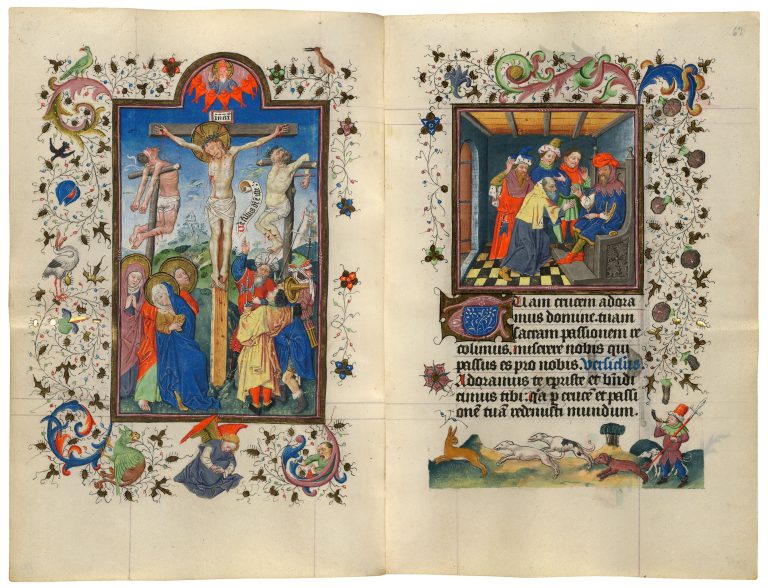 inri
Tuam crucem adora
mus domine. tuam
sacram passionem re
colimus. miserere nobis qui
passus es pro nobis. Versiculus.
Adoramus te xpriste et bndi
cimus tibi. q̃a p crucē et passi
onē tuā redemisti mundum.